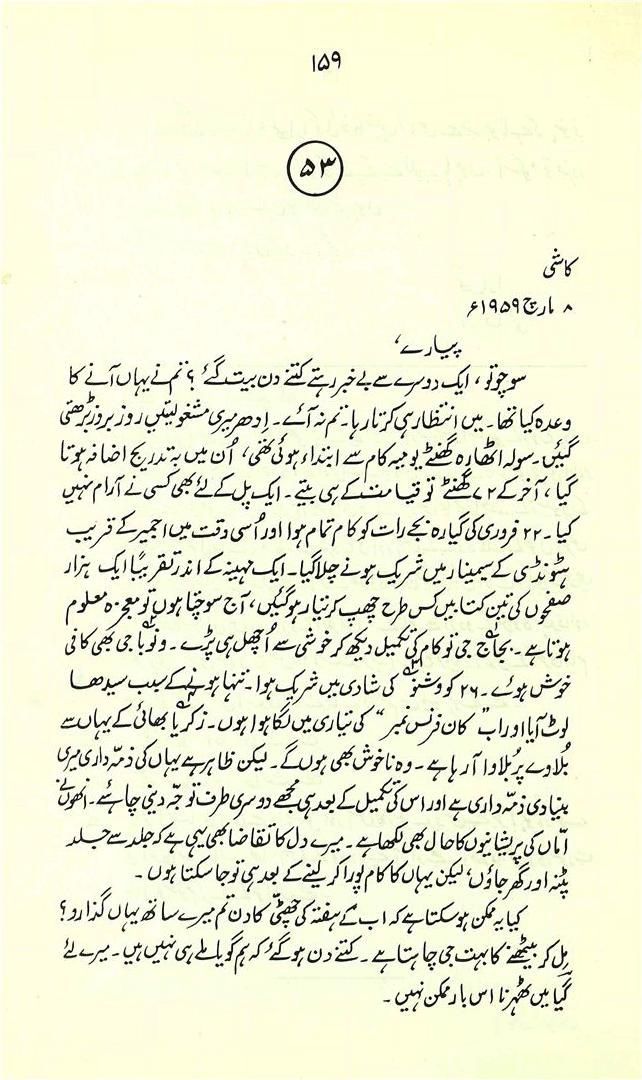 ۱۵۹
۵۳
کاشی
۸ مارچ ۱۹۵۹ء
پیارے،
سوچو تو، ایک دوسرے سے بے خبر رہتے کتنے دن بیت گئے؟ تم نے یہاں آنے کا
وعدہ کیا تھا۔ میں انتظار ہی کرتا رہا۔ تم نہ آئے۔ اِدھر میری مشغولیتیں روز بروز بڑھتی
گئیں۔ سولہ اٹھارہ گھنٹے یومیہ کام سے ابتداء ہوئی تھی، اُن میں بہ تدریج اضافہ ہوتا
گیا، آخر کے ۷۲ گھنٹے تو قیامت کے ہی بیتے۔ ایک پل کے لئے بھی کسی نے آرام نہیں
کیا۔ ۲۲ فروری کی گیارہ بجے رات کو کام تمام ہوا اور اُسی وقت میں اجمیر کے قریب
ہٹونڈی کے سیمینار میں شریک ہونے چلا گیا۔ ایک مہینہ کے اندر تقریباً ایک ہزار
صفحوں کی تین کتابیں کس طرح چھپ کر تیار ہو گئیں، آج سوچتا ہوں تو معجزہ معلوم
ہوتا ہے۔ بجاج جی تو کام کی تکمیل دیکھ کر خوشی سے اُچھل ہی پڑے۔ ونوبا جی بھی کافی
خوش ہوئے۔ ۲۶ کو وشنو کی شادی میں شریک ہوا۔ تنہا ہونے کے سبب سیدھا
لوٹ آیا اور اب "کان فرنس نمبر" کی تیاری میں لگا ہوا ہوں۔ زکریا بھائی کے یہاں سے
بُلاوے پر بُلاوا آ رہا ہے۔ وہ ناخوش بھی ہوں گے۔ لیکن ظاہر ہے یہاں کی ذمّہ داری میری
بنیادی ذمّہ داری ہے اور اس کی تکمیل کے بعد ہی مجھے دوسری طرف توجّہ دینی چاہئے۔ انھوں نے
امّاں کی پریشانیوں کا حال بھی لکھا ہے۔ میرے دل کا تقاضا بھی یہی ہے کہ جلد سے جلد
پٹنہ اور گھر جاؤں، لیکن یہاں کا کام پورا کر لینے کے بعد ہی تو جا سکتا ہوں۔
کیا یہ ممکن ہو سکتا ہے کہ اب کے ہفتہ کی چھٹّی کا دن تم میرے ساتھ یہاں گذارو؟
مِل کر بیٹھنے کا بہت جی چاہتا ہے۔ کتنے دن ہو گئے کہ ہم گویا ملے ہی نہیں ہیں۔ میرے لئے
گیا میں ٹھہرنا اس بار ممکن نہیں۔